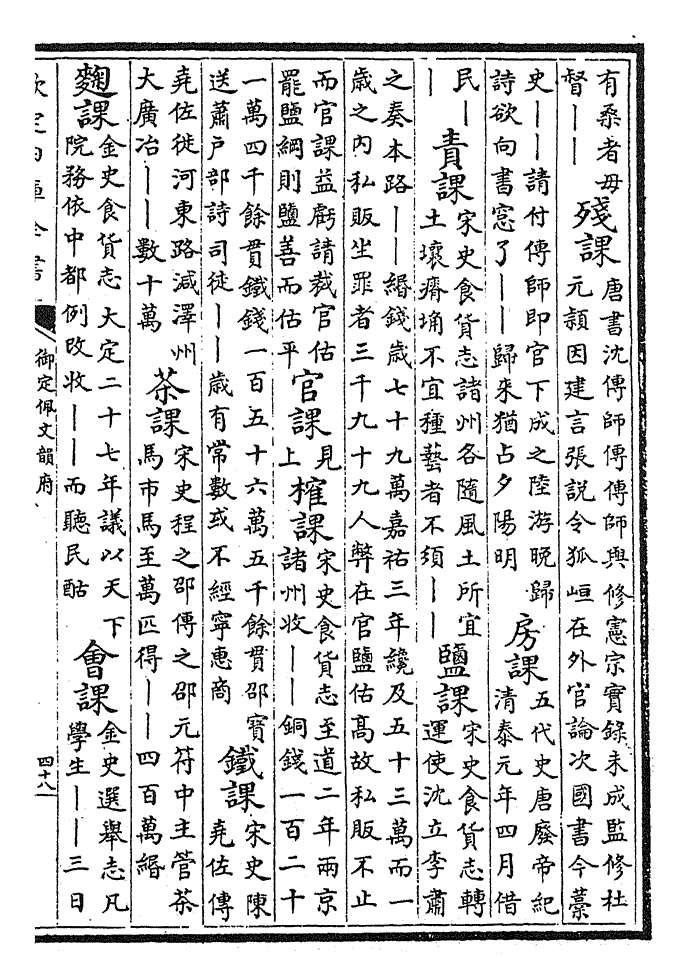 有桑者毋
督——
殘課
唐書沈傳師傳傳師與修憲宗實錄未成監修杜
元穎因建言張說令狐峘在外官論次國書今藁
史——請付傳師即官下成之陸游晚歸
詩欲向書窓了——歸來猶占夕陽明
房課
五代史唐廢帝紀
清泰元年四月借
民—
—
責課
宋史食貨志諸州各隨風土所宜
土壤瘠埆不宜種藝者不須——
鹽課
宋史食貨志轉
運使沈立李肅
之奏本路——緡錢歲七十九萬嘉祐三年纔及五十三萬而一
歲之內私販坐罪者三千九十九人弊在官鹽估高故私販不止
而官課益虧請裁官估
罷鹽綱則鹽善而估平
官課
見
上
榷課
宋史食貨志至道二年兩京
諸州收——銅錢一百二十
一萬四千餘貫鐵錢一百五十六萬五千餘貫邵寶
送蕭戶部詩司徒——歲有常數或不經寧惠商
鐵課
宋史陳
堯佐傳
堯佐徙河東路減澤州
大廣冶——數十萬
茶課
宋史程之邵傳之邵元符中主管茶
馬市馬至萬匹得——四百萬緡
麴課
金史食貨志大定二十七年議以天下
院務依中都例改收——而聽民酤
會課
金史選舉志凡
學生——三日
欽定四庫全書
御定佩文韻府
四十八